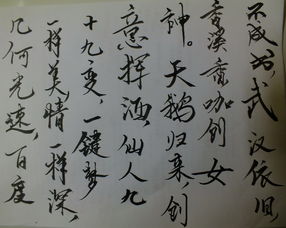 不成功,武汉依旧,
香溪香咖创女
神。天鹅归来,创
意挥洒,仙人九
十九变,一键梦
一样美,情一样深,
几何光速,百度